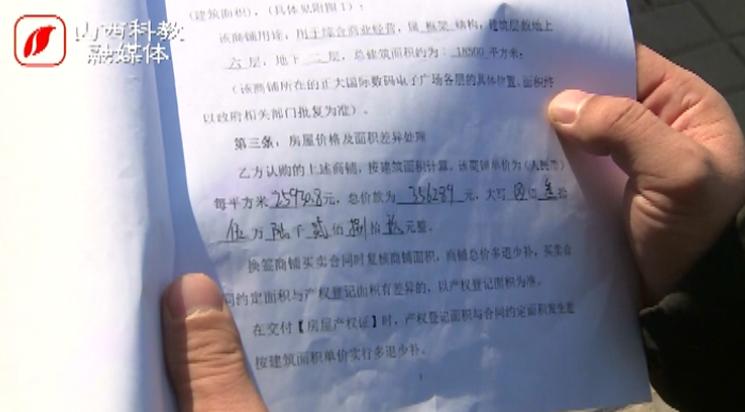 山西科教
融媒体
(建筑面积),(具体见附图1);
该商铺用途,用于综合商业经营,属 框架 结构,建筑层数地上
六 层,地下 二 层,总建筑面积约为:18500 平方米;
(该商铺所在的正大国际数码电子广场各层的具体位置、面积终
以政府相关部门批复为准)。
第三条,房屋价格及面积差异处理
乙方认购的上述商铺,按建筑面积计算,该商铺单价为(人民币)
每平方米 25930.8 元,总价款为 356289 元,大写
伍 万 陆 千 贰 佰 捌 拾 玖 元整。
换签商铺买卖合同时复核商铺面积,商铺总价多退少补,买卖合
同约定面积与产权登记面积有差异的,以产权登记面积为准。
在交付【房屋产权证】时,产权登记面积与合同约定面积发生差
按建筑面积单价实行多退少补。
1